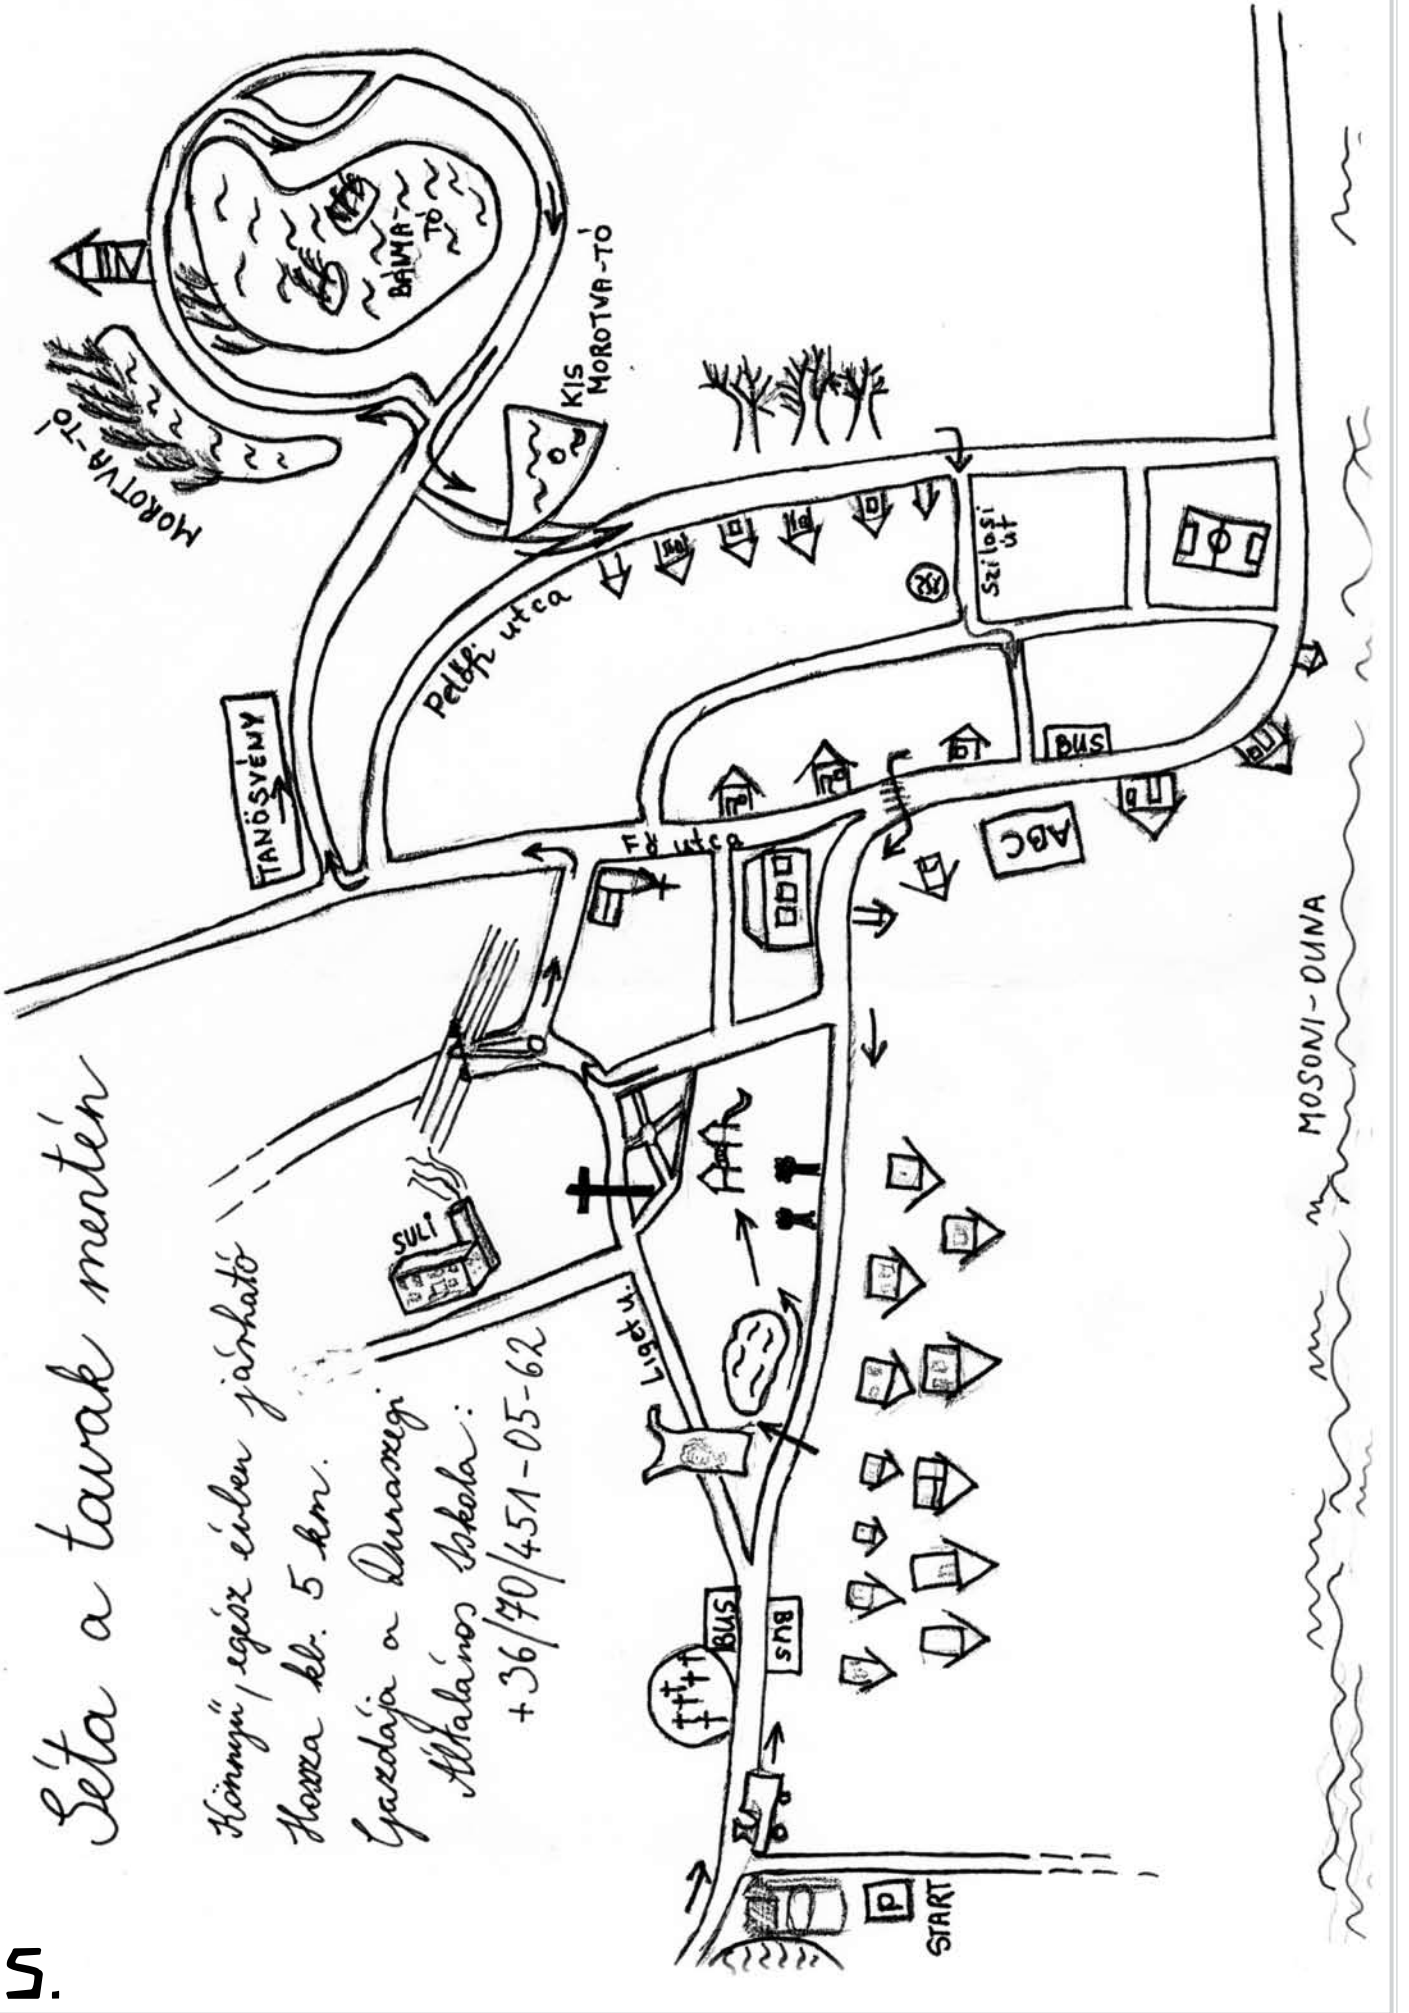 5.
Séta a tavak mentén
Könnyű, egész évben járható
Hossza kb. 5 km.
Gazdája a Dunaszegi
Általános Iskola:
+36/70/451-05-62
MOROTVA-TÓ
BÁNYA-
TÓ
KIS
MOROTVA-TÓ
TANÖSVÉNY
Petőfi utca
Szilasi
út
Fő utca
SULI
Liget u.
BUS
ABC
BUS
BUS
P
START
MOSONI-DUNA